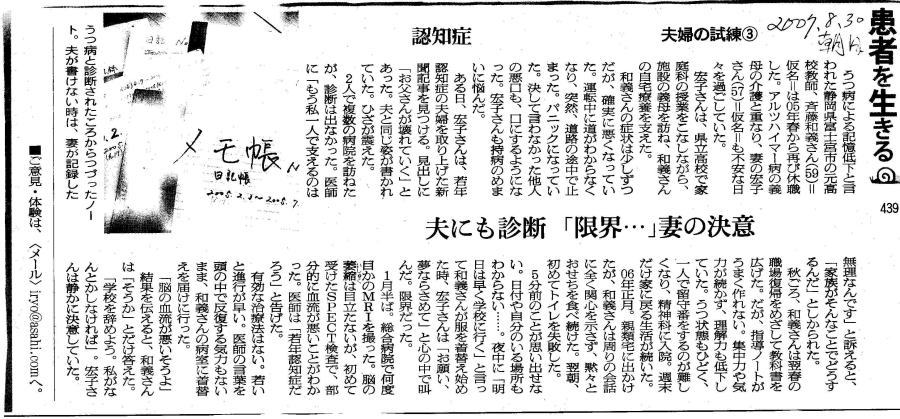 2007.8.30
朝日
患者を生きる
439
認知症
夫婦の試練③
夫にも診断 「限界…」妻の決意
うつ病による記憶低下と言
われた静岡県富士宮市の元高
校教師、斉藤和義さん(59)=
仮名=は05年春から再び休職
した。アルツハイマー病の義
母の介護と重なり、妻の宏子
さん(57)=仮名=も不安な日
々を過ごしていた。
宏子さんは、県立高校で家
庭科の授業をこなしながら、
施設の義母を訪ね、和義さん
の自宅療養を支えた。
和義さんの症状は少しずつ
だが、確実に悪くなってい
た。運転中に道がわからなく
なり、突然、道路の途中で止
まった。パニックになってい
た。決して言わなかった他人
の悪口も、口にするようにな
った。宏子さんも持病のめま
いに悩んだ。
ある日、宏子さんは、若年
認知症の夫婦を取り上げた新
聞記事を見つける。見出しに
「お父さんが壊れていく」と
あった。夫と同じ姿が書かれ
ていた。ひざが震えた。
2人で複数の病院を訪ねた
が、診断は出なかった。医師
に「もう私一人で支えるのは
無理なんです」と訴えると、
「家族がそんなことでどうす
るんだ」としかられた。
秋ごろ、和義さんは翌春の
職場復帰をめざして教科書を
広げた。だが、指導ノートが
うまく作れない。集中力や気
力が続かず、理解力も低下し
ていた。うつ状態もひどく、
一人で留守番をするのが難し
くなり、精神科に入院。週末
だけ家に戻る生活が続いた。
06年正月。親類宅に出かけ
たが、和義さんは周りの会話
に全く関心を示さず、黙々と
おせちを食べ続けた。翌朝、
初めてトイレを失敗した。
5分前のことが思い出せな
い。日付や自分のいる場所も
わからない……。夜中に「明
日は早く学校に行く」と言っ
て和義さんが服を着替え始め
た時、宏子さんは「お願い、
夢ならさめて」と心の中で叫
んだ。限界だった。
1月半ば。総合病院で何度
目かのMRIを撮った。脳の
萎縮は目立たないが、初めて
受けたSPECT検査で、部
分的に血流が悪いことがわか
った。医師は「若年認知症だ
ろう」と告げた。
有効な治療法はない。若い
と進行が早い。医師の言葉を
頭の中で反復する気力もない
まま、和義さんの病室に着替
えを届けに行った。
「脳の血流が悪いそうよ」
結果を伝えると、和義さん
は「そうか」とだけ答えた。
「学校を辞めよう。私がな
んとかしなければ」。宏子さ
んは静かに決意していた。
メモ帳
日記帳
うつ病と診断されたころからつづったノー
ト。夫が書けない時は、妻が記録した
■ご意見・体験は、〈メール〉iryo@asahi.comへ。